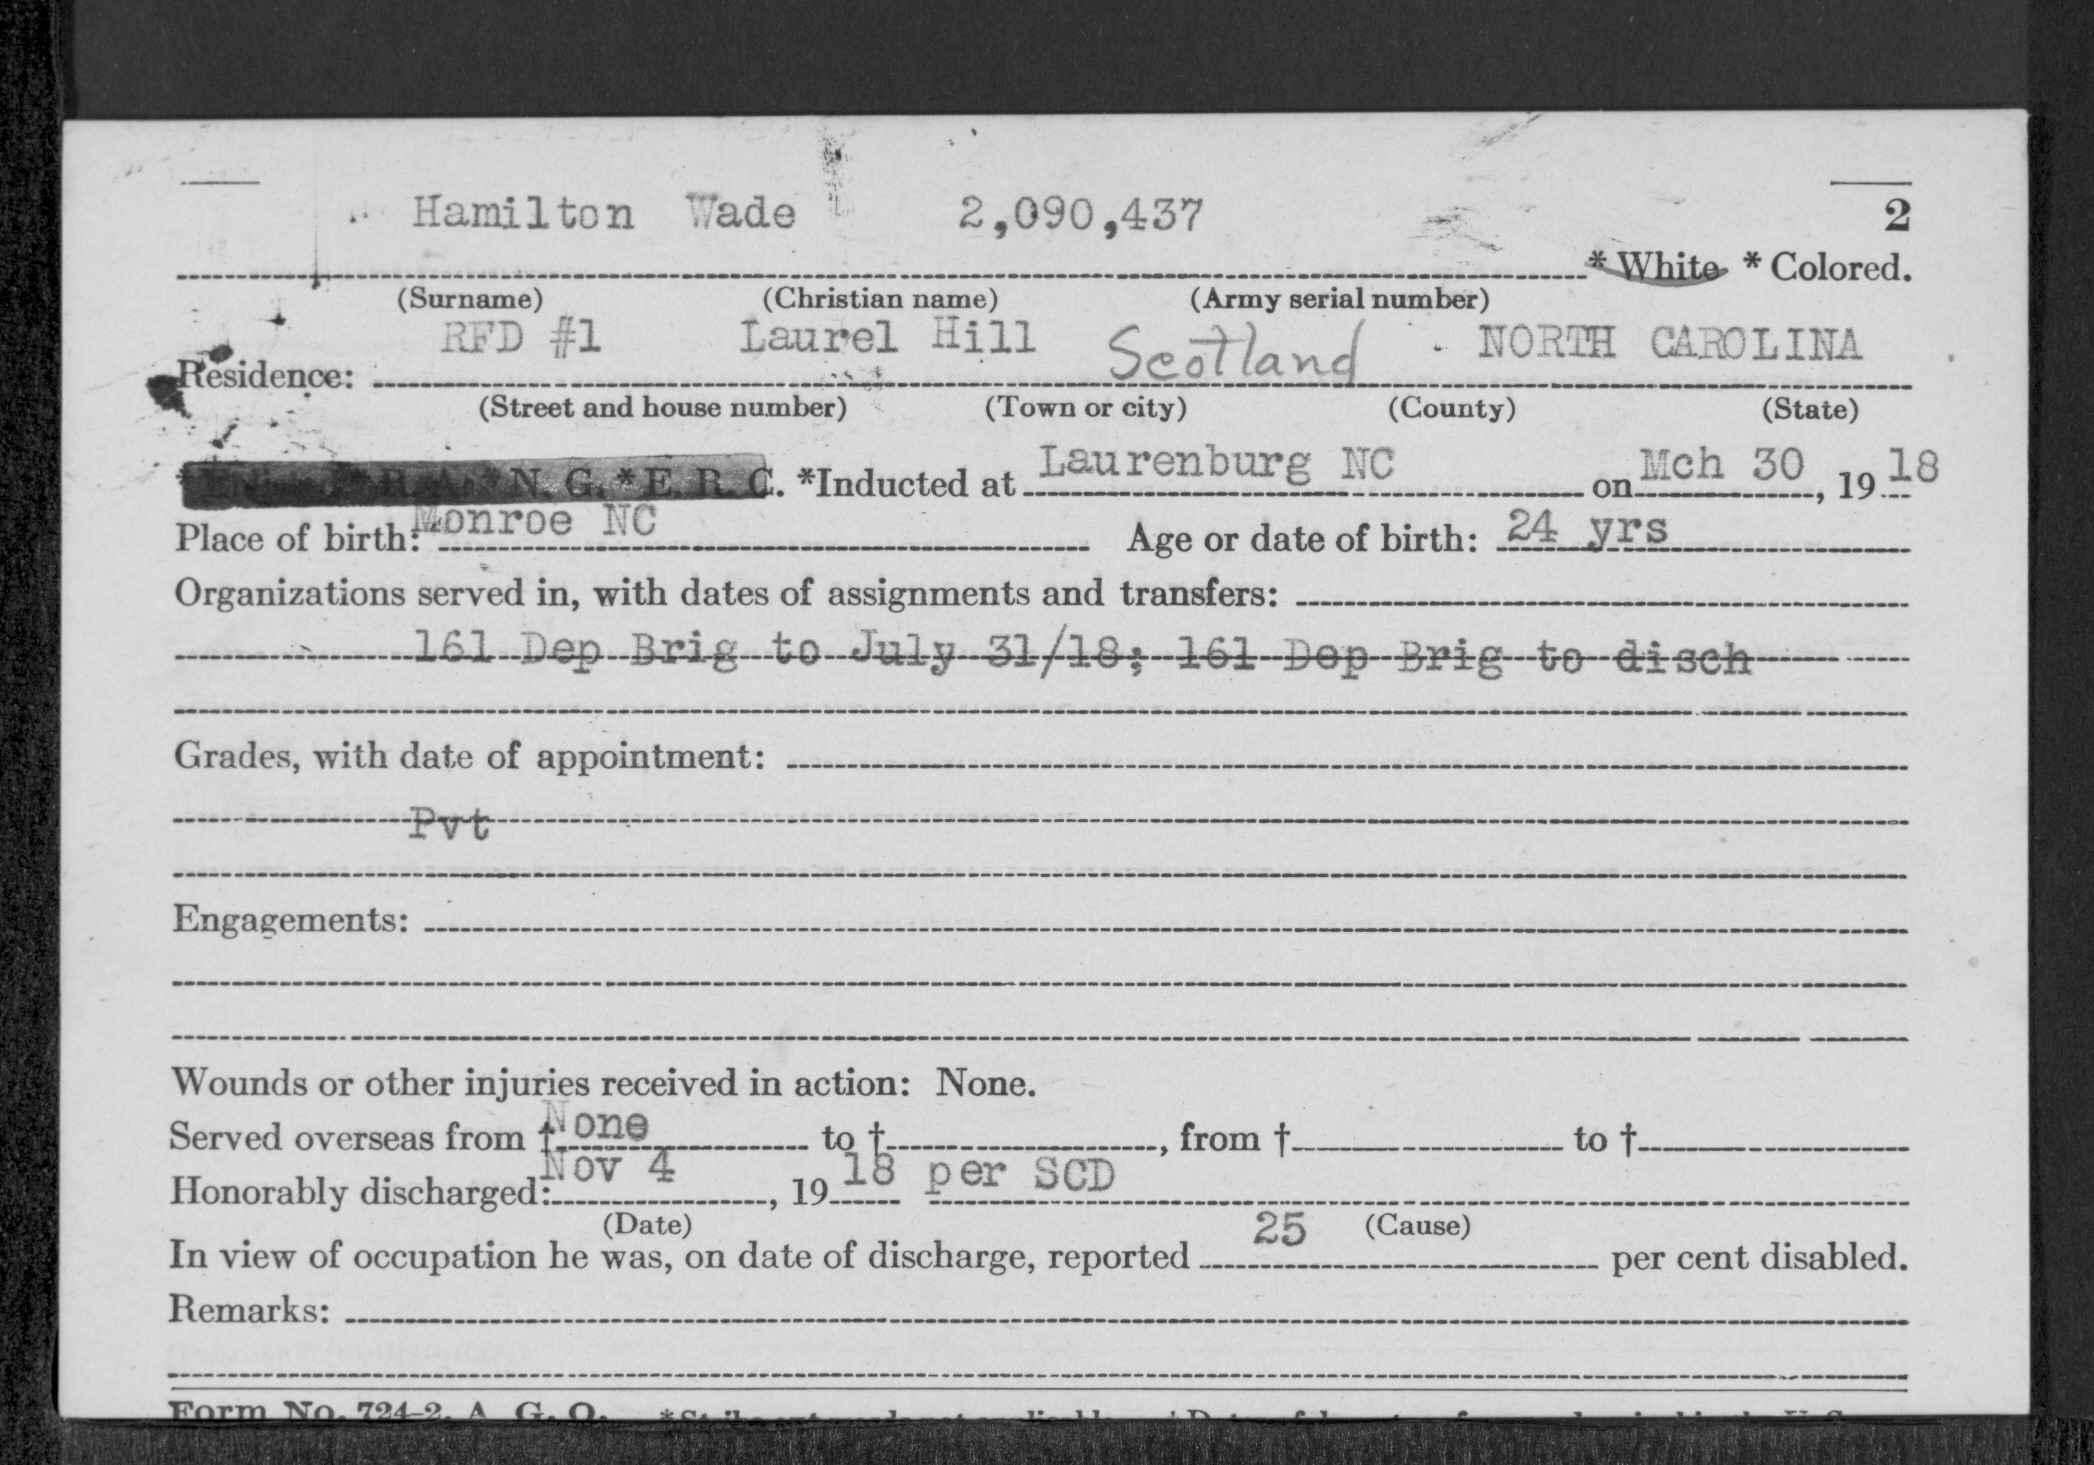 Hamilton Wade 2,090,437 2
* White * Colored.
(Surname) (Christian name) (Army serial number)
RFD #1 Laurel Hill Scotland NORTH CAROLINA
Residence:
(Street and house number) (Town or city) (County) (State)
* R. A. * N. G. * E. R. C. *Inducted at Laurenburg NC on Mch 30, 1918
Place of birth: Monroe NC Age or date of birth: 24 yrs
Organizations served in, with dates of assignments and transfers:
161 Dep Brig to July 31/18; 161 Dep Brig to disch
Grades, with date of appointment:
Pvt
Engagements:
Wounds or other injuries received in action: None.
Served overseas from † None to †, from † to †
Honorably discharged: Nov 4, 1918 per SCD
(Date) (Cause)
In view of occupation he was, on date of discharge, reported 25 per cent disabled.
Remarks:
Form No. 724-2, A. G. O.